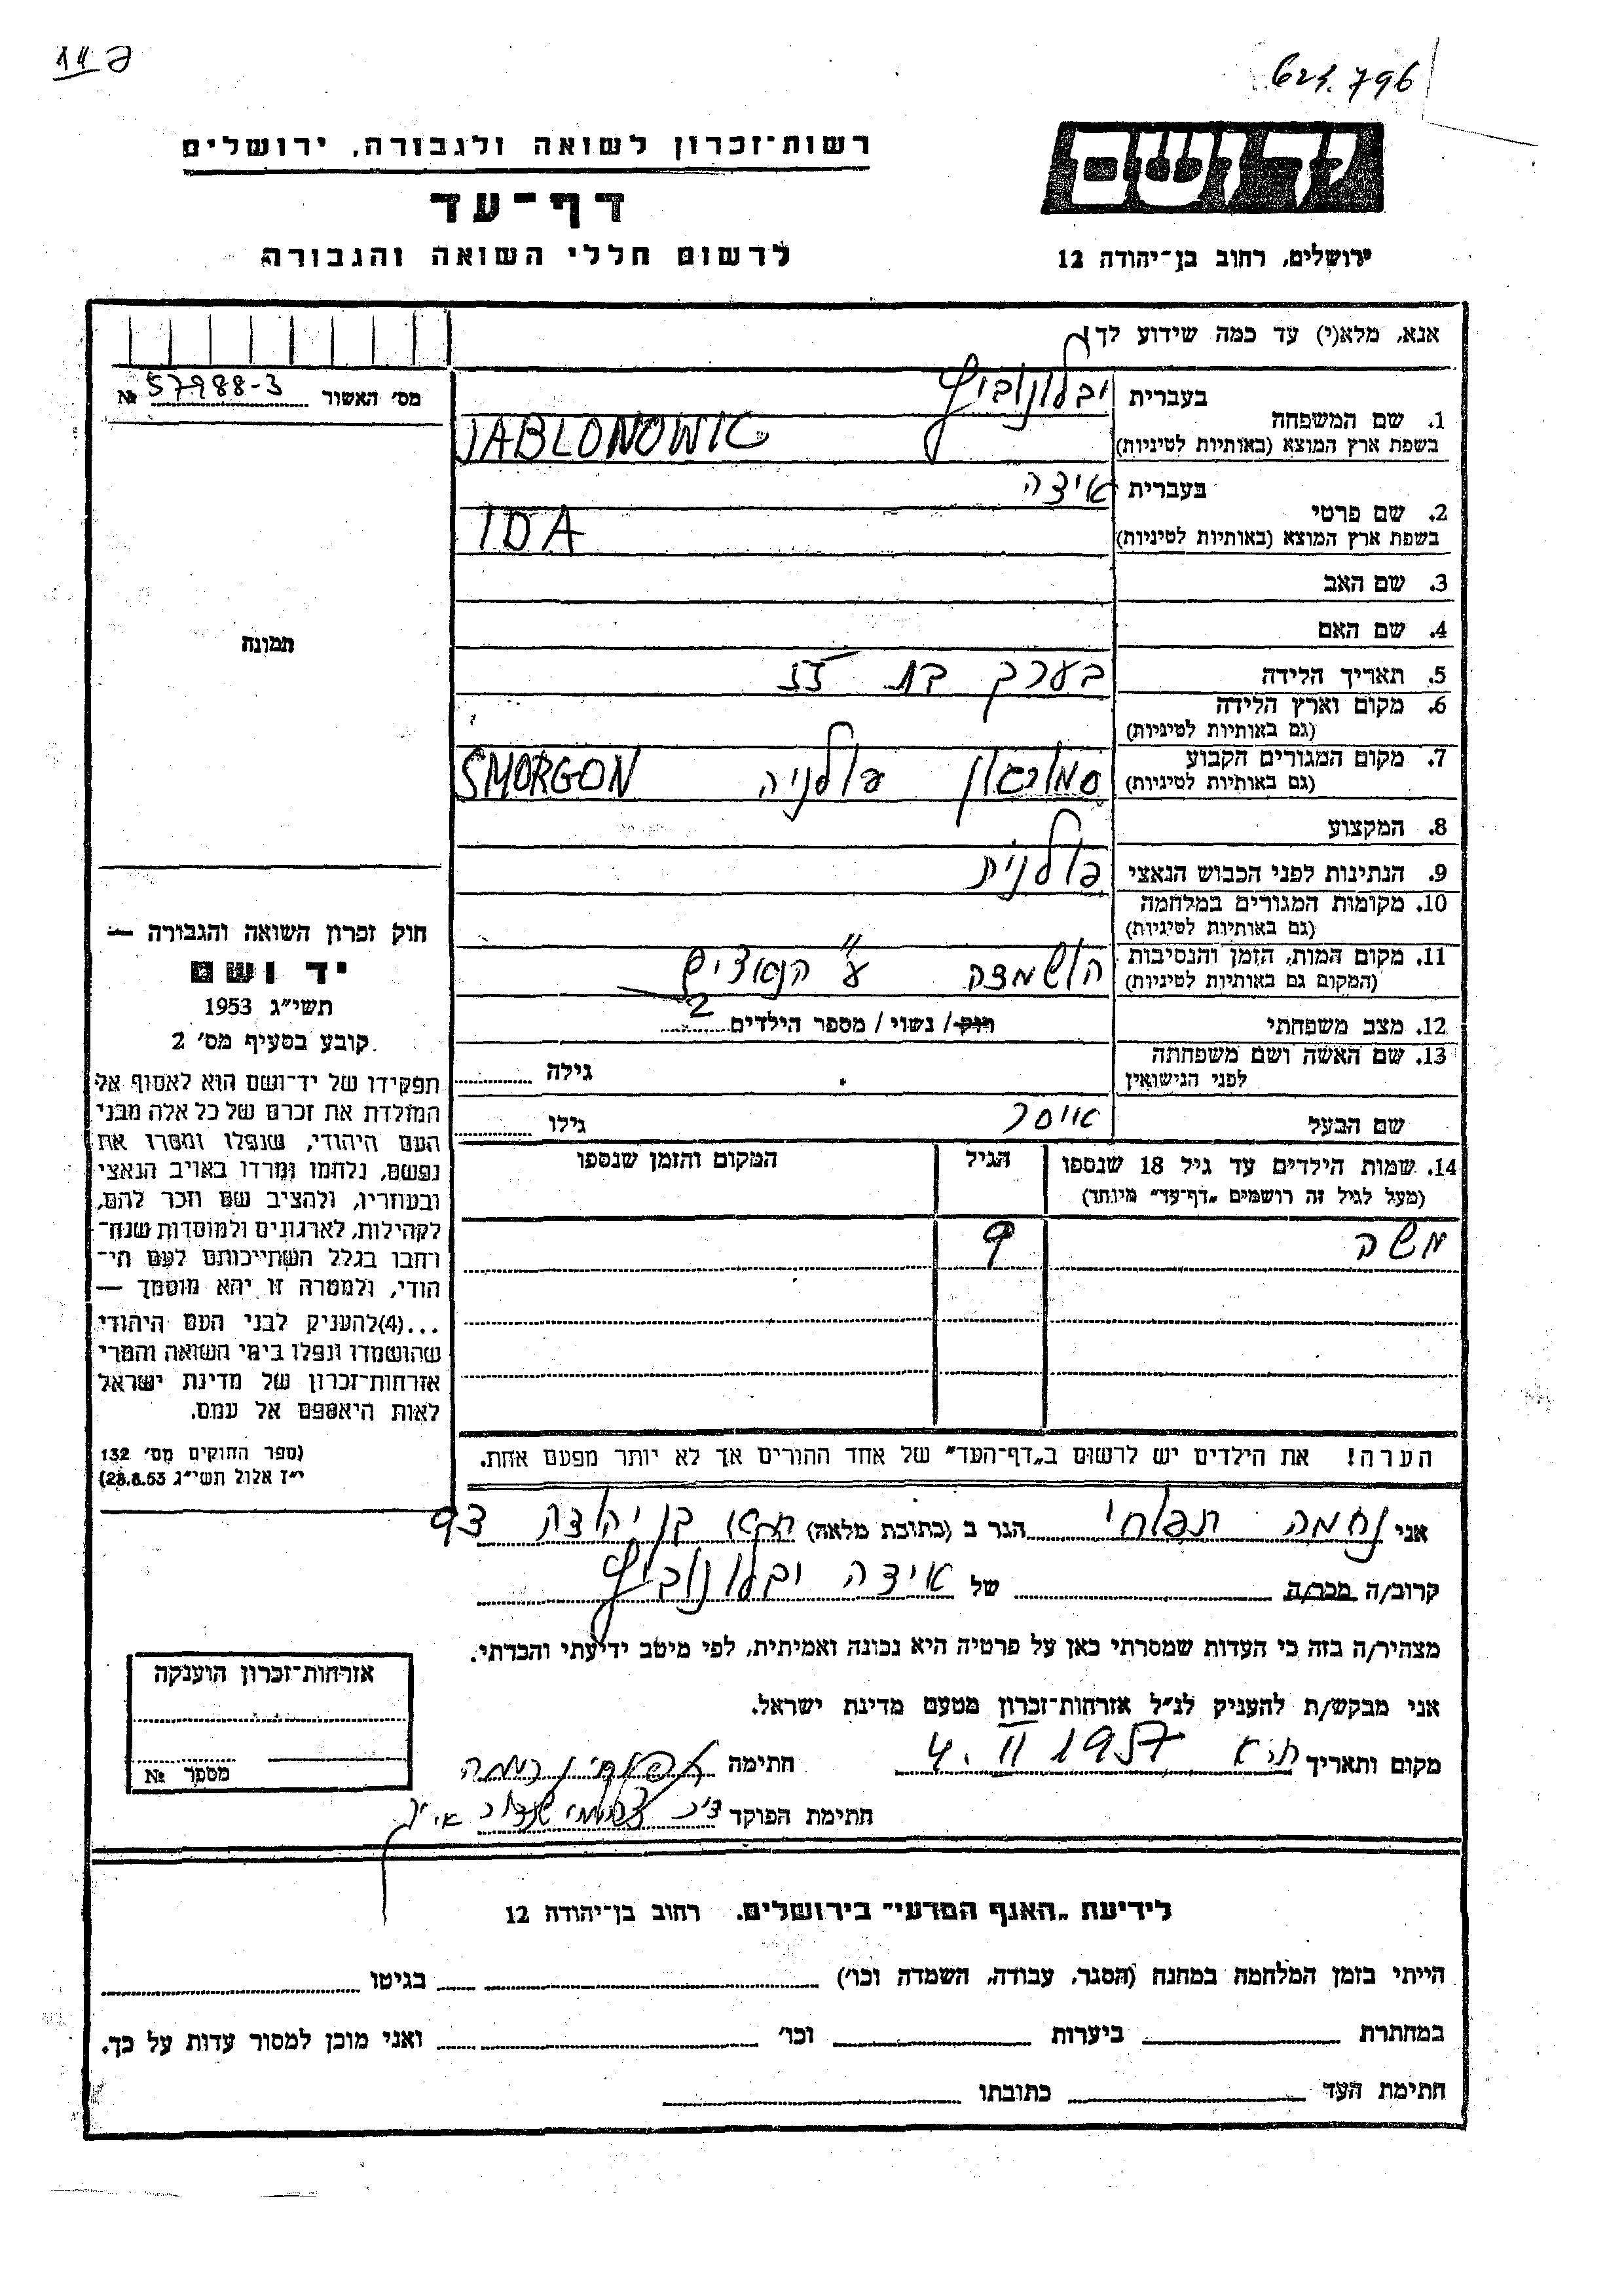 624.796
רשות-זכרון לשואה ולגבורה, ירושלים
יד ושם
דף-עד
לרשום חללי השואה והגבורה
ירושלים, רחוב בן-יהודה 12
אנא, מלא(י) עד כמה שידוע לך!
מס׳ האשור 57988-3 №
1. שם המשפחה
בעברית יבלונוביץ
בשפת ארץ המוצא (באותיות לטיניות) JABLONOWIC
2. שם פרטי
בעברית אידה
בשפת ארץ המוצא (באותיות לטיניות) IDA
3. שם האב
4. שם האם
תמונה
5. תאריך הלידה בערך בת
6. מקום וארץ הלידה
(גם באותיות לטיניות)
7. מקום המגורים הקבוע סמורגון פולניה SMORGON
(גם באותיות לטיניות)
8. המקצוע
9. הנתינות לפני הכבוש הנאצי פולנית
10. מקומות המגורים במלחמה
(גם באותיות לטיניות)
11. מקום המות, הזמן והנסיבות הושמדה ע״י הנאצים
(המקום גם באותיות לטיניות)
12. מצב משפחתי רוק/ נשוי/ מספר הילדים 2
13. שם האשה ושם משפחתה
לפני הנישואין
גילה
שם הבעל אייסר
גילו
14. שמות הילדים עד גיל 18 שנספו
(מעל לגיל זה רושמים „דף-עד״ מיוחד)
הגיל
המקום והזמן שנספו
משה 9
הערה! את הילדים יש לרשום ב„דף-העד״ של אחד ההורים אך לא יותר מפעם אחת.
חוק זכרון השואה והגבורה —
יד ושם
תשי״ג 1953
קובע בסעיף מס׳ 2
תפקידו של יד-ושם הוא לאסוף אל
המולדת את זכרם של כל אלה מבני
העם היהודי, שנפלו ומסרו את
נפשם, נלחמו ומרדו באויב הנאצי
ובעוזריו, ולהציב שם וזכר להם,
לקהילות, לארגונים ולמוסדות שנח-
רחבו בגלל השתייכותם לעם הי-
הודי, ולמטרה זו יהא מוסמך —
...(4)להעניק לבני העם היהודי
שהושמדו ונפלו בימי השואה והמרי
אזרחות-זכרון של מדינת ישראל
לאות היאספם אל עמם.
(ספר החוקים מס׳ 132
י״ז אלול תשי״ג 28.8.53)
אני נחמה תפוחי הגר ב (כתובת מלאה) בן יהודה
קרוב/ה מכר/ה של אידה יבלונוביץ
מצהיר/ה בזה כי העדות שמסרתי כאן על פרטיה היא נכונה ואמיתית, לפי מיטב ידיעתי והכרתי.
אני מבקש/ת להעניק לנ״ל אזרחות-זכרון מטעם מדינת ישראל.
מקום ותאריך ת״א 4. II 1957 חתימה
חתימת הפוקד
אזרחות-זכרון הוענקה
מספר №
לידיעת „האגף המדעי״ בירושלים. רחוב בן-יהודה 12
הייתי בזמן המלחמה במחנה (הסגר, עבודה, השמדה וכו׳) בגיטו
במחתרת ביערות וכו׳ ואני מוכן למסור עדות על כך.
חתימת העד כתובתו